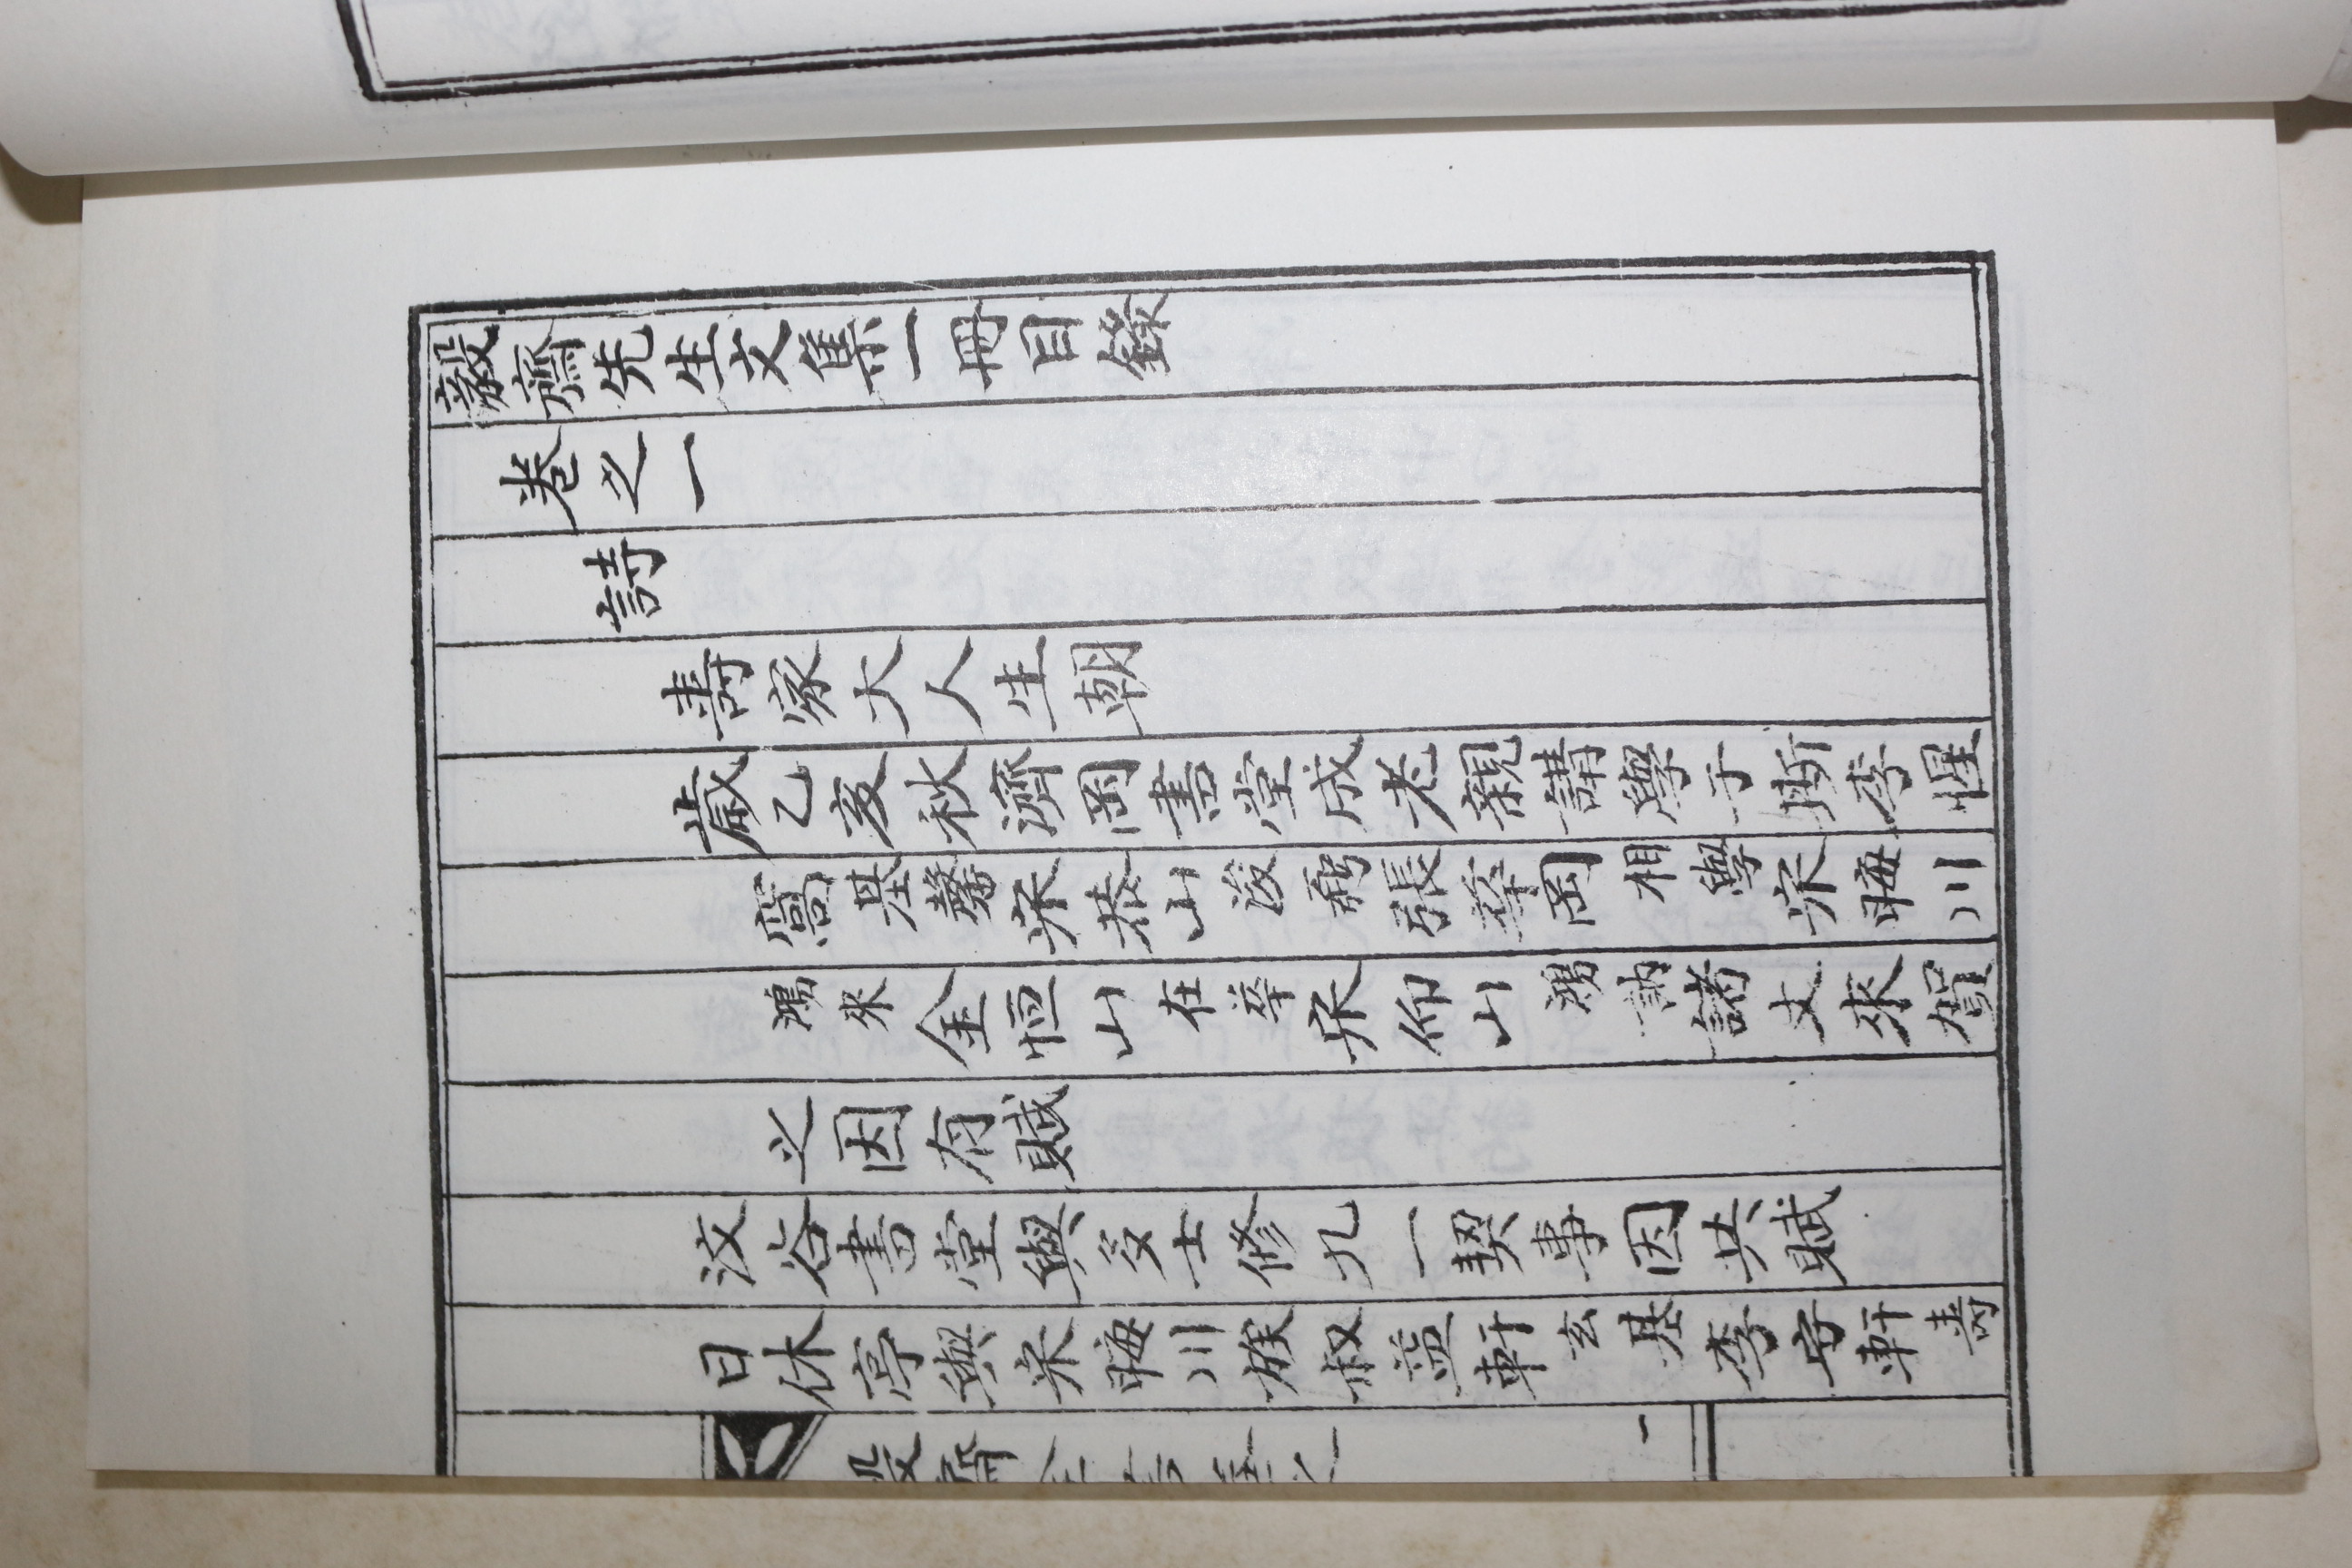 毅齋先生文集一冊目錄
卷之一
詩
壽家大人生朝
歲乙亥秋濟岡書堂成老親講學于斯李惺
窩基馨宋恭山浚弼張華岡相學宋晦川
鴻來金恒山在華宋仰山鴻訥諸丈來賀
之因有賦
汶谷書堂與多士修九一契事因共賦
日休亭與宋晦川族叔益軒玄基李守軒壽
一